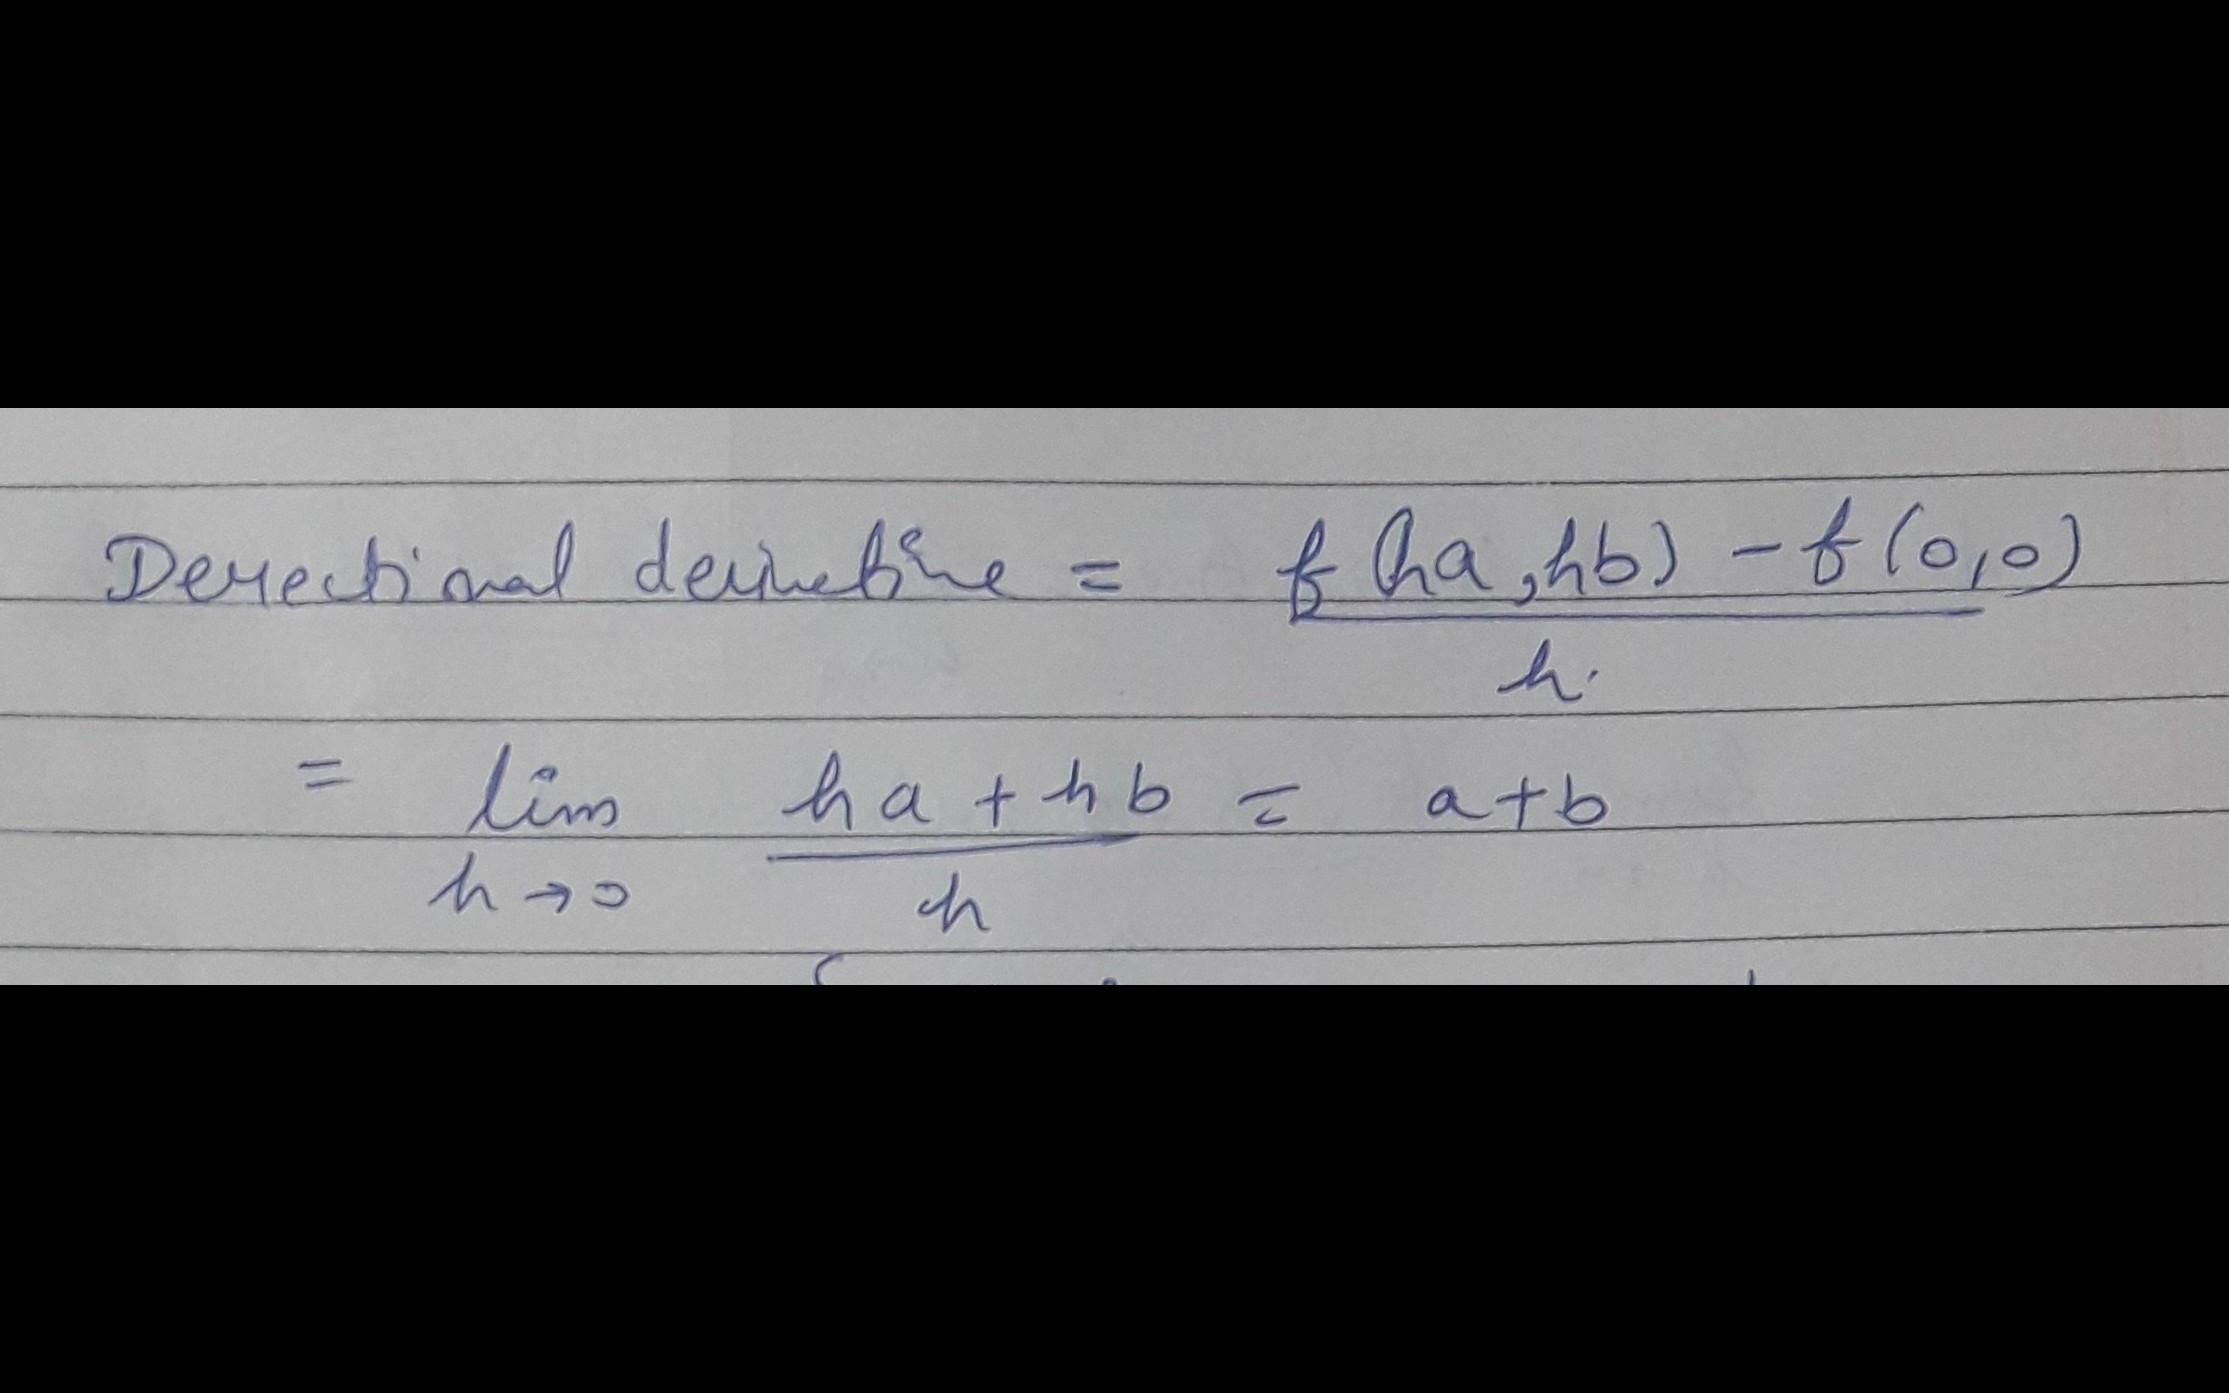 Derectional derivative = f(ha, hb) - f(0,0) / h.
= lim h→0 ha + hb / h = a+b